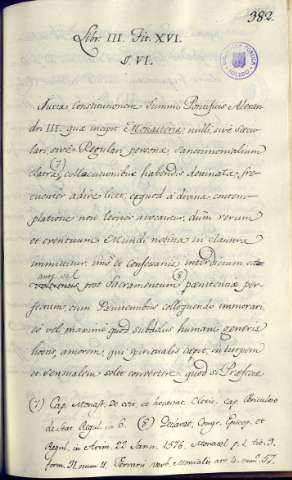 382.
Libr. III. Tit. XVI.
§. VI.
Juxta constitutionem Summi Pontificis Alexan
dri III. quæ incipit Monasteria nulli sive sæcu
lari sive Regulari personæ Sanctimonialium
claustra, (7) collocutionibus habendis destinata, fre
cuenter adire licet, eo quod á divina contem
platione non leviter avocantur, dum rerum
et eventuum Mundi notitia in claustra
immittitur, imò et Confessario interdictum est
aut vel
post Sacramentum (8) pœnitentiæ per
fectum, cum Pœnitentibus colloquendo immorari,
eo vel maxime quod subdolus humani generis
hostis, amorem, qui spiritualis cœpit, in turpem
et sensualem solet convertere, quod si Professæ
(7) Cap. Monast. De vit. et honestat. Cleric. Cap. Periculoso
de Stat. Regul. in 6. (8) Decret. Congr. Episcop. et
Regul. in Arim. 22 Jann. 1576. Monacel. p. 1. tit. 9.
form. 11. num 4. Ferrari verb. Moniales art. 4. num. 57.